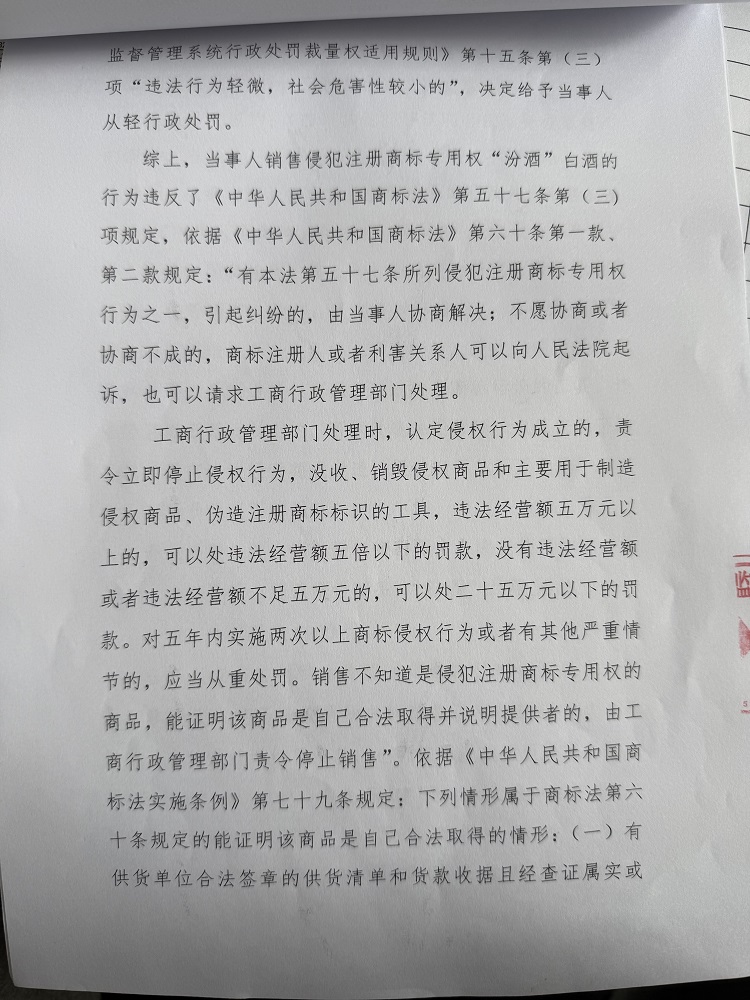 监督管理系统行政处罚裁量权适用规则》第十五条第（三）
项“违法行为轻微，社会危害性较小的”，决定给予当事人
从轻行政处罚。
综上，当事人销售侵犯注册商标专用权“汾酒”白酒的
行为违反了《中华人民共和国商标法》第五十七条第（三）
项规定，依据《中华人民共和国商标法》第六十条第一款、
第二款规定：“有本法第五十七条所列侵犯注册商标专用权
行为之一，引起纠纷的，由当事人协商解决；不愿协商或者
协商不成的，商标注册人或者利害关系人可以向人民法院起
诉，也可以请求工商行政管理部门处理。
工商行政管理部门处理时，认定侵权行为成立的，责
令立即停止侵权行为，没收、销毁侵权商品和主要用于制造
侵权商品、伪造注册商标标识的工具，违法经营额五万元以
上的，可以处违法经营额五倍以下的罚款，没有违法经营额
或者违法经营额不足五万元的，可以处二十五万元以下的罚
款。对五年内实施两次以上商标侵权行为或者有其他严重情
节的，应当从重处罚。销售不知道是侵犯注册商标专用权的
商品，能证明该商品是自己合法取得并说明提供者的，由工
商行政管理部门责令停止销售”。依据《中华人民共和国商
标法实施条例》第七十九条规定：下列情形属于商标法第六
十条规定的能证明该商品是自己合法取得的情形：（一）有
供货单位合法签章的供货清单和货款收据且经查证属实或
监